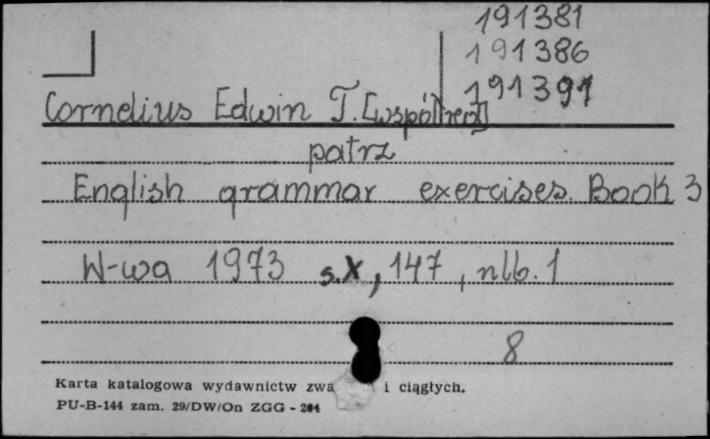 191381
191386
191391
Cornelius Edwin T. [współred]
patrz
English grammar exercises. Book 3
W-wa 1973 s.X, 147, nlb. 1
8
Karta katalogowa wydawnictw zwa i ciągłych.
PU-B-144 zam. 29/DW/On ZGG - 204